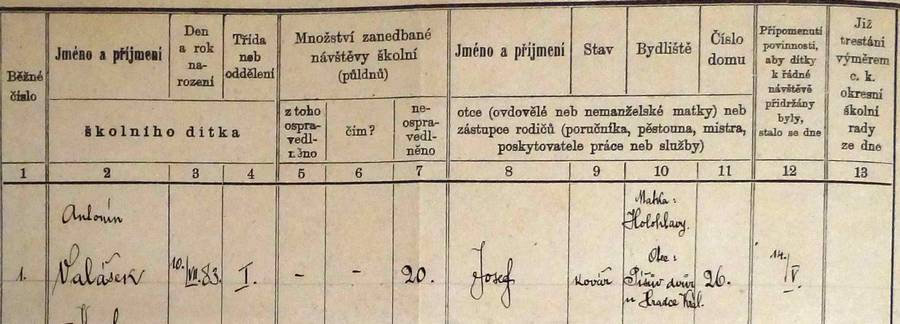 Běžné číslo
Jméno a příjmení
Den a rok na-rození
Třída neb oddělení
školního dítka
Množství zanedbané návštěvy školní (půldnů)
z toho ospra-vedl-něno
čím?
ne-ospra-vedl-něno
Jméno a příjmení
Stav
Bydliště
Číslo domu
otce (ovdovělé neb nemanželské matky) neb
zástupce rodičů (poručníka, pěstouna, mistra,
poskytovatele práce neb služby)
Připomenutí povinnosti, aby dítky k řádné návštěvě přidrženy byly, stalo se dne
Již trestáni výměrem c. k. okresní školní rady ze dne
1 2 3 4 5 6 7 8 9 10 11 12 13
Antonín
Matka:
Holohlavy.
Otec:
1. Valášek 10./VII.83. I. - - 20. Josef kovář Píšův dvůr 26. 14./V.
u Hradce Král.